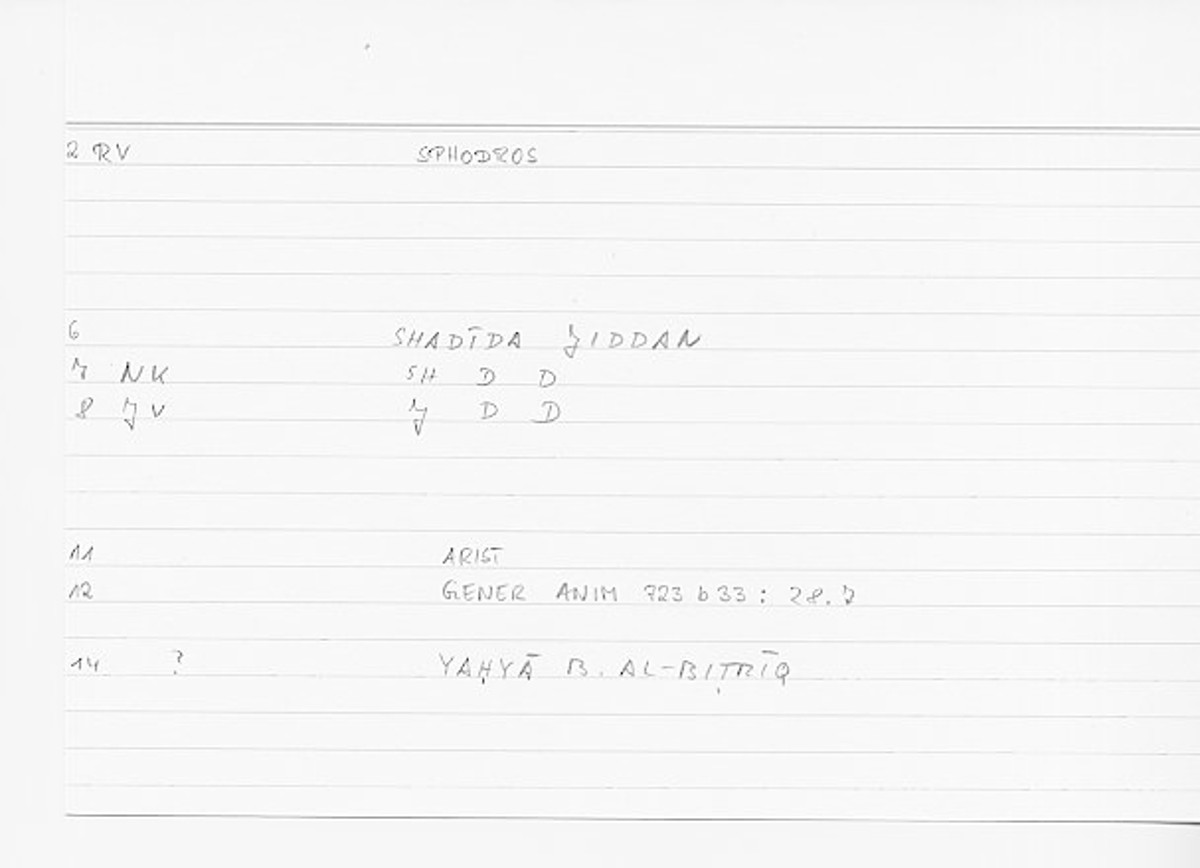 2 RV SPHODROS
6 SHADĪDA J̌IDDAN
7 NK SH D D
8 J̌V J̌ D D
11 ARIST
12 GENER ANIM 723 b 33 : 28.7
14 ? YAḤYĀ B. AL-BIṬRĪQ